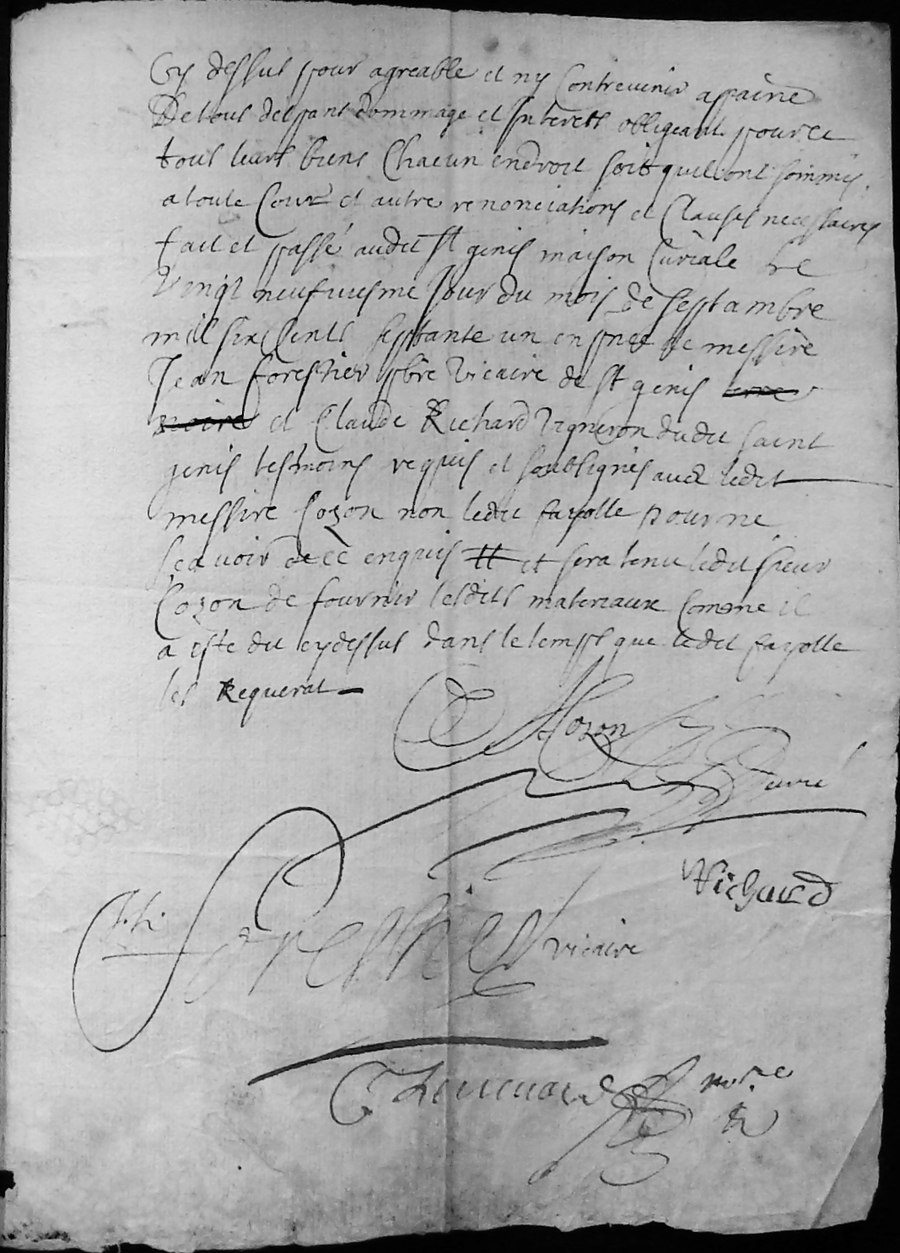 Cy dessus pour agreable et ny Contrevenir appaine
De tous despans dommage et Interets obligeant pour ce
tous leurs biens Chacun endroit soit quil ont sommis
a toute Cour et autre renonciations et Clauses necessaires
fait et passé audit st genis maison Curiale le
Vingt neufviesme Jour du mois de septambre
mil six Cents septante un en pnce de messire
Jean forestier pbre Vicaire de st genis
et Claude Richard Vigneron dudit saint
genis tesmoins requis et soubsignes avec ledit
messire Cozon non ledit fayolle pour ne
scavoir de ce enquis et sera tenu ledit sieur
Cozon de fournir lesdits materiaux Comme il
a este dit cy dessus dans le temps que ledit fayolle
les Requerat
Cozon
Curé
Richard
forestier vicaire
nore